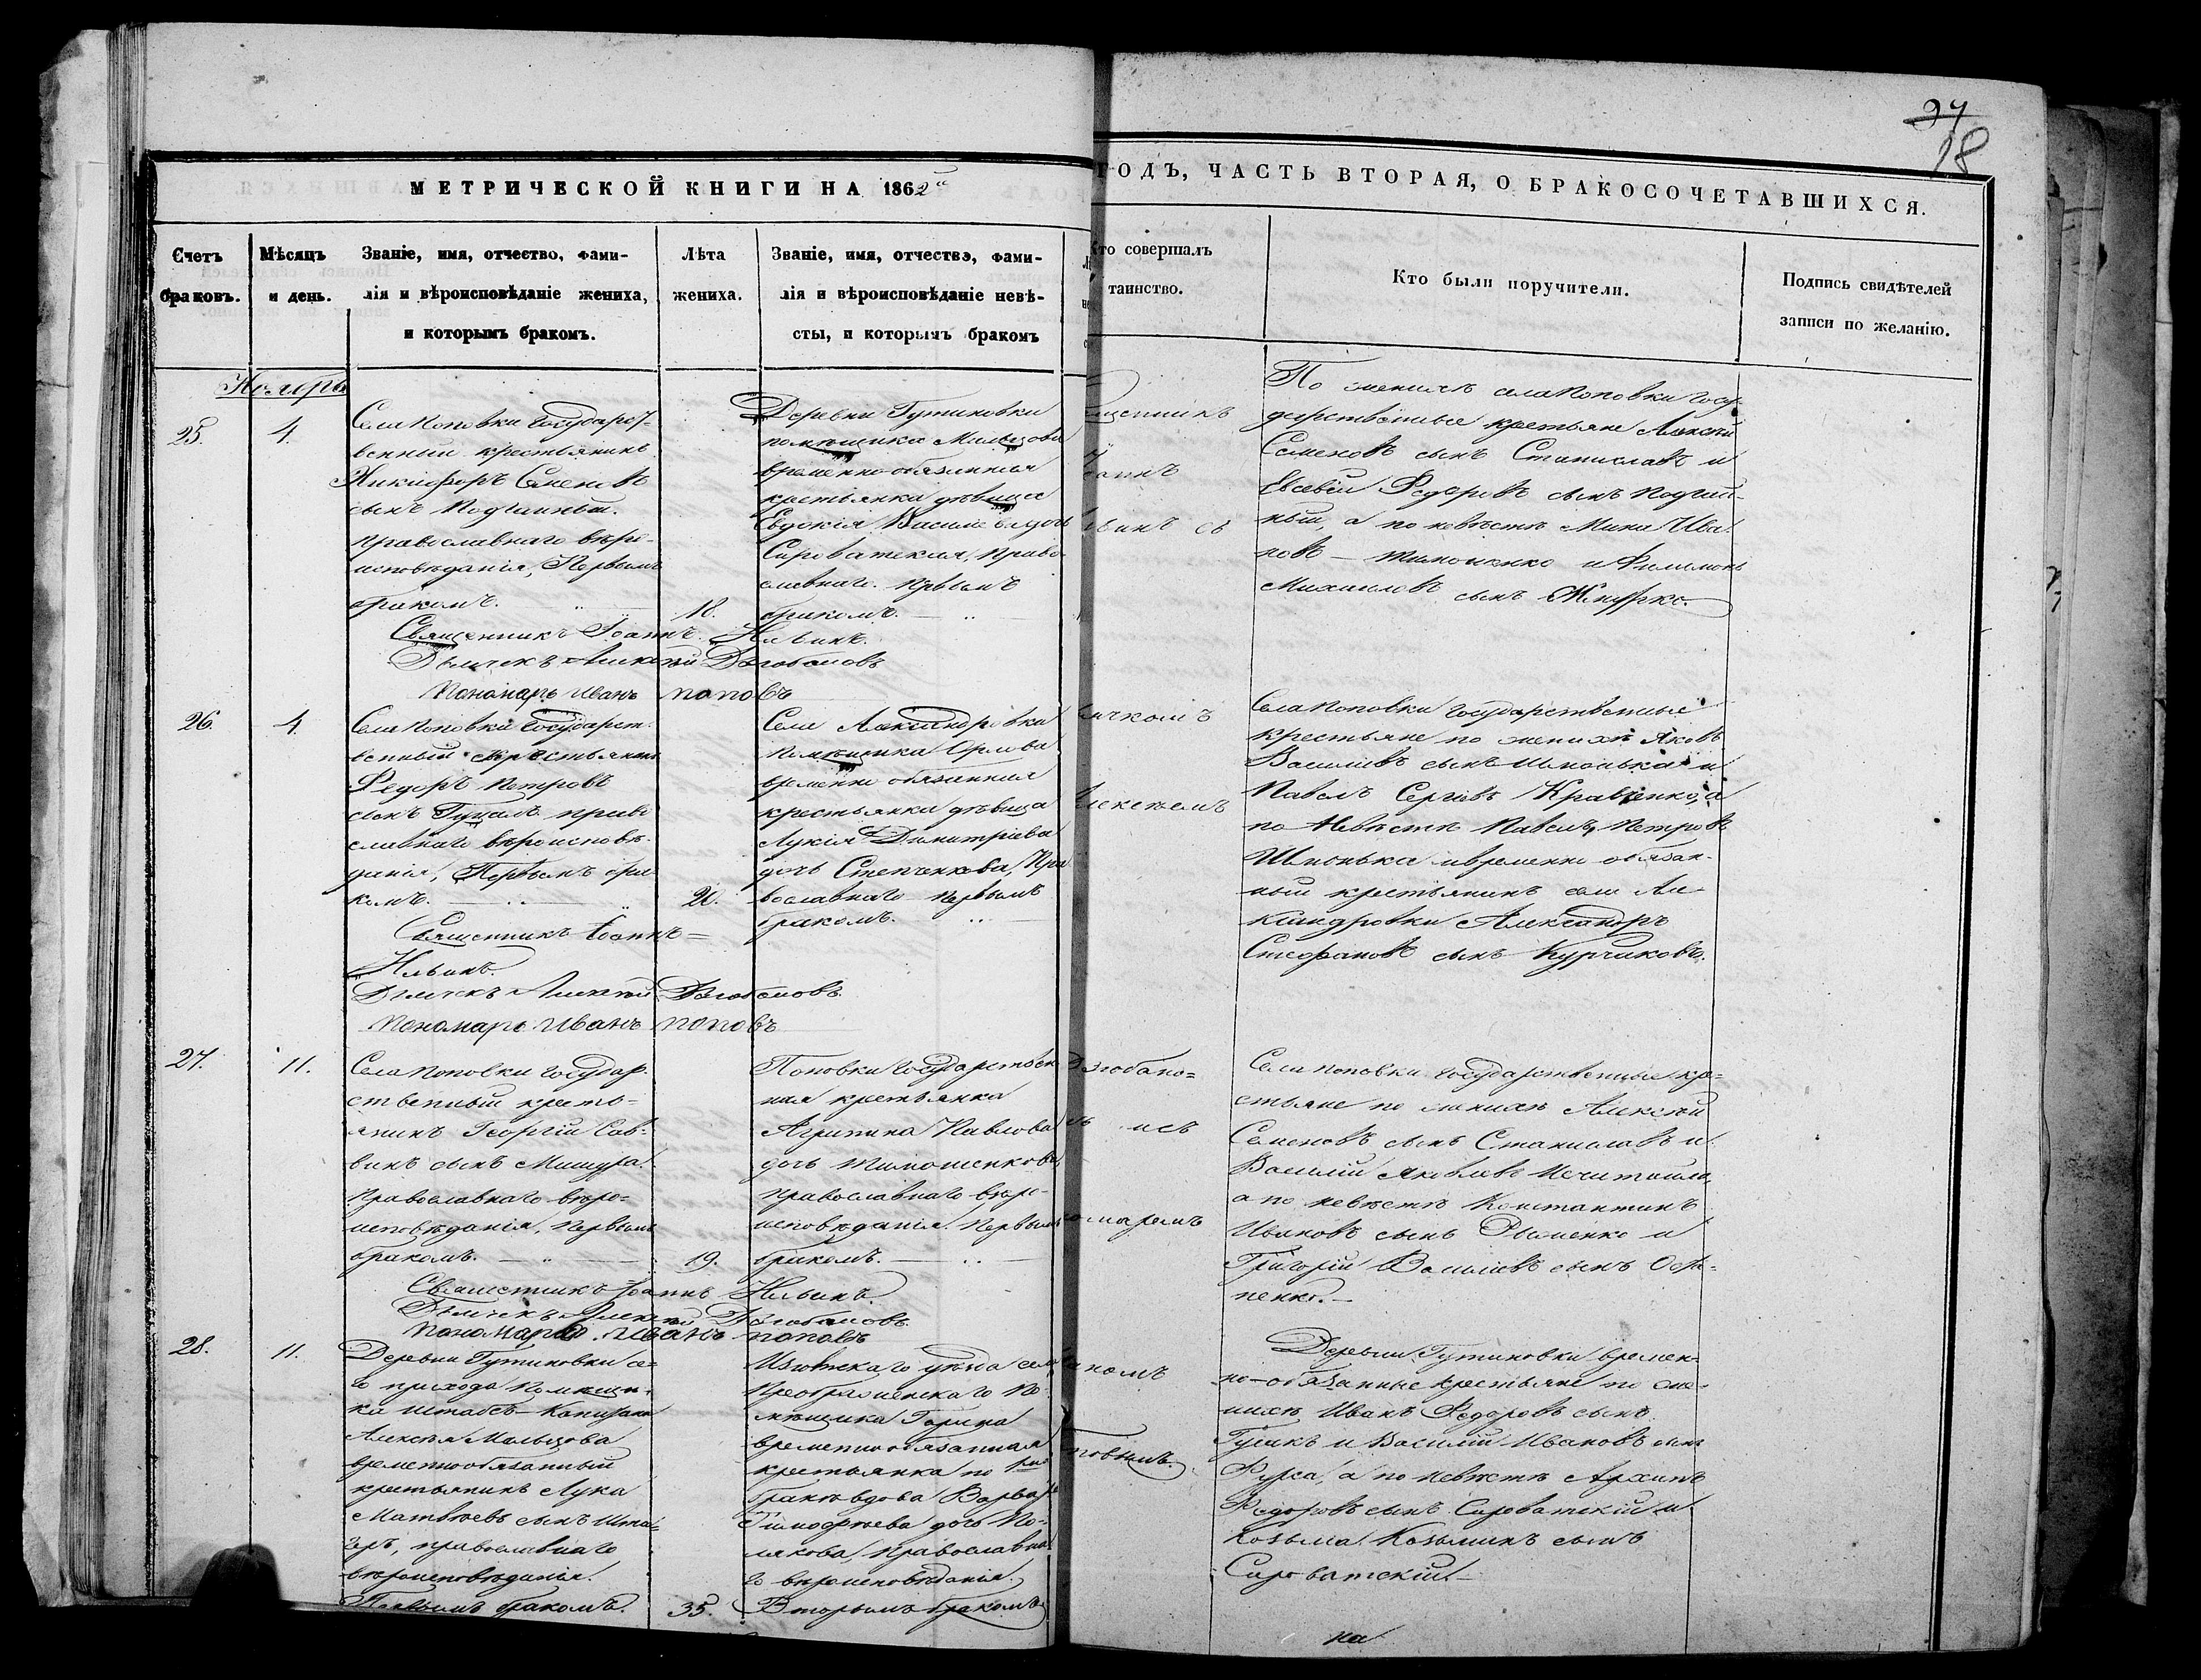 97
18
МЕТРИЧЕСКОЙ КНИГИ НА 1862й
ГОДЪ, ЧАСТЬ ВТОРАЯ, О БРАКОСОЧЕТАВШИХСЯ.
Счетъ браковъ.
Мѣсяцъ и день.
Званіе, имя, отчество, фами-
лія и вѣроисповѣданіе жениха,
и которымъ бракомъ.
Лѣта
жениха.
Званіе, имя, отчество, фами-
лія и вѣроисповѣданіе невѣ-
сты, и которымъ бракомъ
Кто совершалъ
таинство.
Кто были поручители.
Подпись свидѣтелей
записи по желанію.
Ноябрь
25.
4.
Села Поповки Государст-
венный крестьянинъ
Никифоръ Семеновъ
сынъ
православнаго вѣро-
исповѣданія, Первымъ
бракомъ.
18.
Деревни Гутиновки
помѣщика Мальцова
временнообязанная
крестьянка дѣвица
Евдокія Васильева дочь
Сироватская, право-
славнаго. первымъ
бракомъ.
Священникъ Іоаннъ Ильинъ.
Дьячекъ Алексѣй
Пономарь Иванъ Поповъ
щенникъ
Іоаннъ
Ильинъ съ
По женихѣ села Поповки Госу-
дарственные крестьяне Алексѣй
Семеновъ сынъ Станиславъ и
Евсевій Федоровъ сынъ
ный, а по невѣстѣ Мина Ива-
новъ Тимошенко и Филимонъ
Михаиловъ сынъ
26.
4.
Села Поповки Государст-
венный крестьянинъ
Федоръ Петровъ
сынъ право-
славнаго вѣроисповѣ-
данія, Первымъ бра-
комъ.
20.
Села Александровки
Помѣщика Орлова
временно обязанная
крестьянка дѣвица
Лукія Димитріева
дочь Степченкова, Пра-
вославнаго первымъ
бракомъ.
Священникъ Іоаннъ
Ильинъ.
Дьячекъ Алексѣй
Пономарь Иванъ Поповъ
ячкомъ
Алексѣемъ
Села Поповки Государственные
крестьяне по женихѣ Яковъ
Василіевъ сынъ Шпонька и
Павелъ Сергіевъ Кравченко, а
по невѣстѣ Павелъ Петровъ
Шпонька и временно обязан-
ный крестьянинъ села Але-
ксандровки Александръ
Стефановъ сынъ Курчаковъ.
27.
11.
Села Поповки Государ-
ственный кресть-
янинъ Георгій Сав-
винъ сынъ Мишура.
православнаго вѣро-
исповѣданія, Первымъ
бракомъ.
19.
Поповки Государствен-
ная крестьянка
Агрипина Павлова
дочь Тимошенкова,
православнаго вѣро-
исповѣданія. Первымъ
бракомъ.
Священникъ Іоаннъ Ильинъ.
Дьячекъ Алексѣй
Пономарь Иванъ Поповъ
номаремъ
Села Поповки Государственные кре-
стьяне по женихѣ Алексѣй
Семеновъ сынъ Станиславъ и
Василій Яковлевъ Нечитайло,
а по невѣстѣ Константинъ
Ивановъ сынъ и
Григорій Василіевъ сынъ
пенко.
28.
11.
Деревни Гутиновки се-
го прихода Помѣщи-
ка Штабсъ-Капитана
Алексѣя Мальцова
временнообязанный
крестьянинъ Лука
Матвѣевъ сынъ
православнаго
вѣроисповѣданія.
Первымъ бракомъ.
35.
Изюмскаго уѣзда села
Преображенскаго По-
мѣщика
временнообязанная
крестьянка по
бракѣ вдова Варвара
Тимофѣева дочь По-
лякова, Православна-
го вѣроисповѣданія.
Вторымъ бракомъ
аномъ
повымъ.
Деревни Гутиновки времен-
но-обязанные крестьяне по же-
нихѣ Иванъ Федоровъ сынъ
Гусакъ и Василій Ивановъ сынъ
а по невѣстѣ Архипъ
Федоровъ сынъ Сироватскій и
Козьма Козьминъ сынъ
Сироватскій.
на